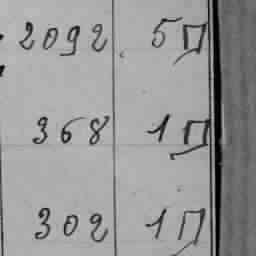 2092 5П
368 1П
302 1П